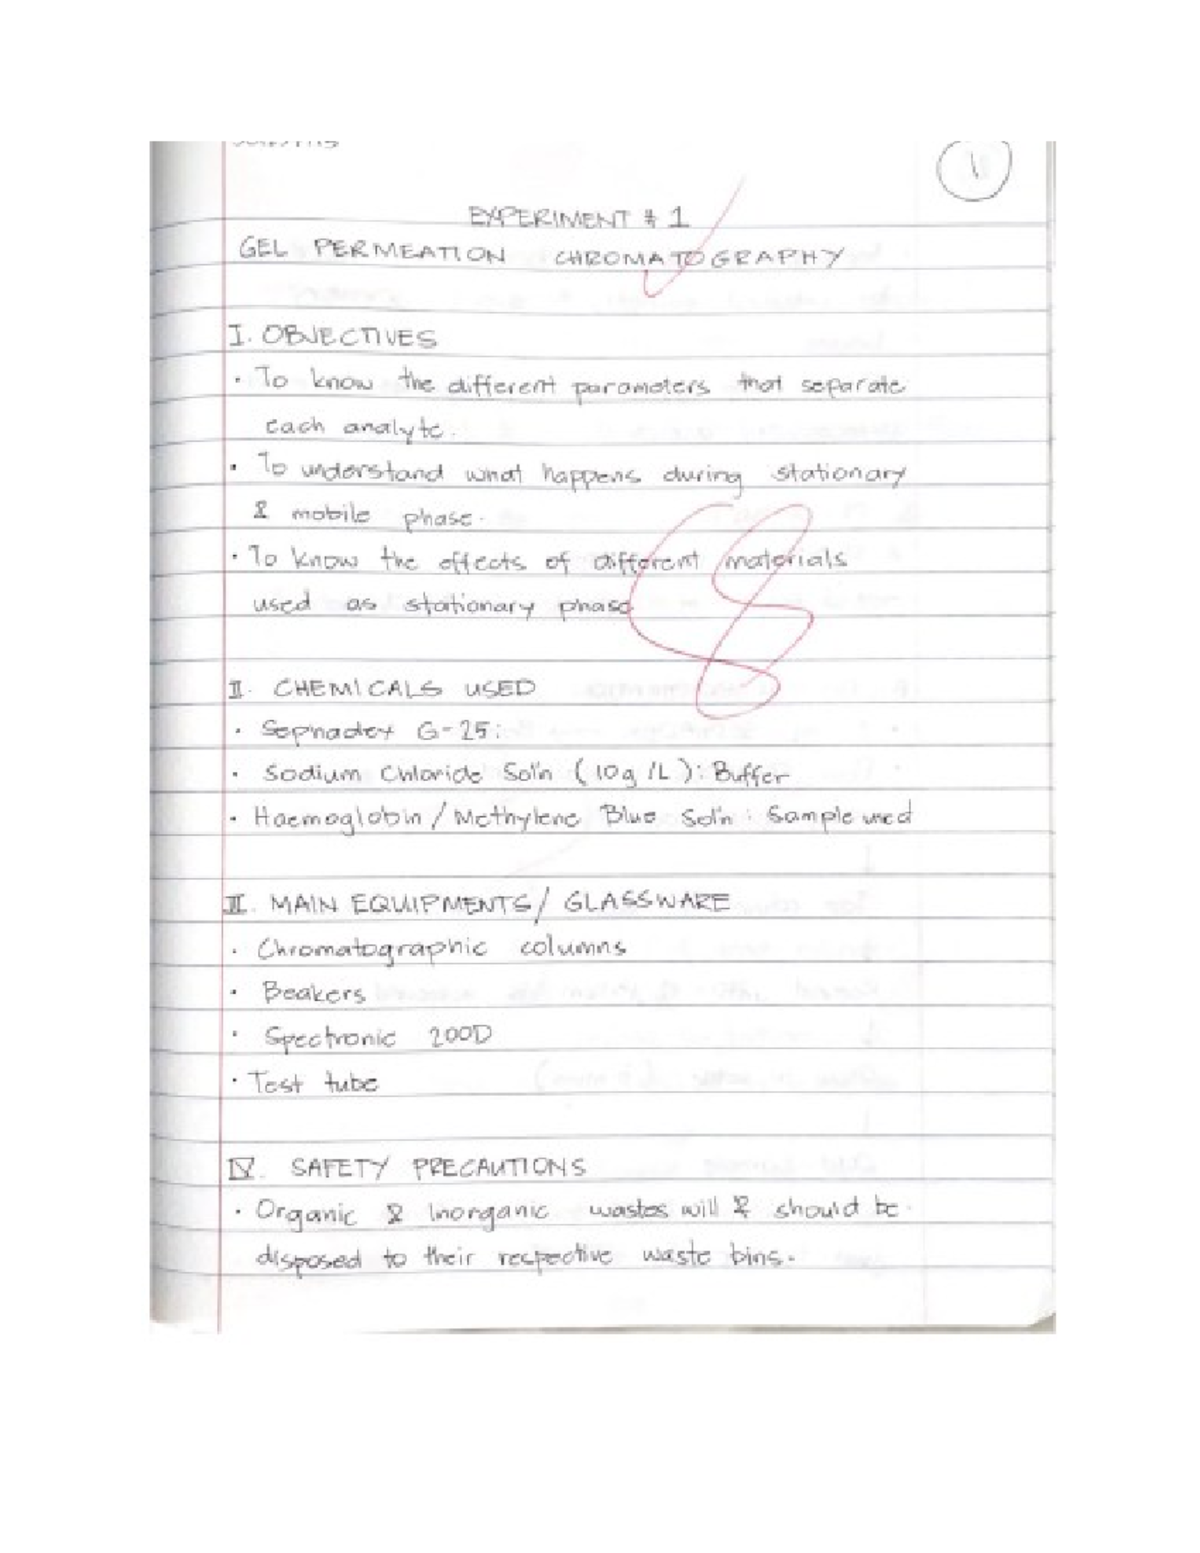 1
EXPERIMENT # 1
GEL PERMEATION CHROMATOGRAPHY
I. OBJECTIVES
· To know the different parameters that separate
each analyte.
· To understand what happens during stationary
& mobile phase.
· To know the effects of different materials
used as stationary phase
8
II. CHEMICALS USED
· Sephadex G-25:
· Sodium Chloride Sol'n (10g/L): Buffer
· Haemoglobin/Methylene Blue Sol'n: Sample used
III. MAIN EQUIPMENTS/ GLASSWARE
· Chromatographic columns
· Beakers
· Spectronic 200D
· Test tube
IV. SAFETY PRECAUTIONS
· Organic & Inorganic wastes will & should be
disposed to their respective waste bins.